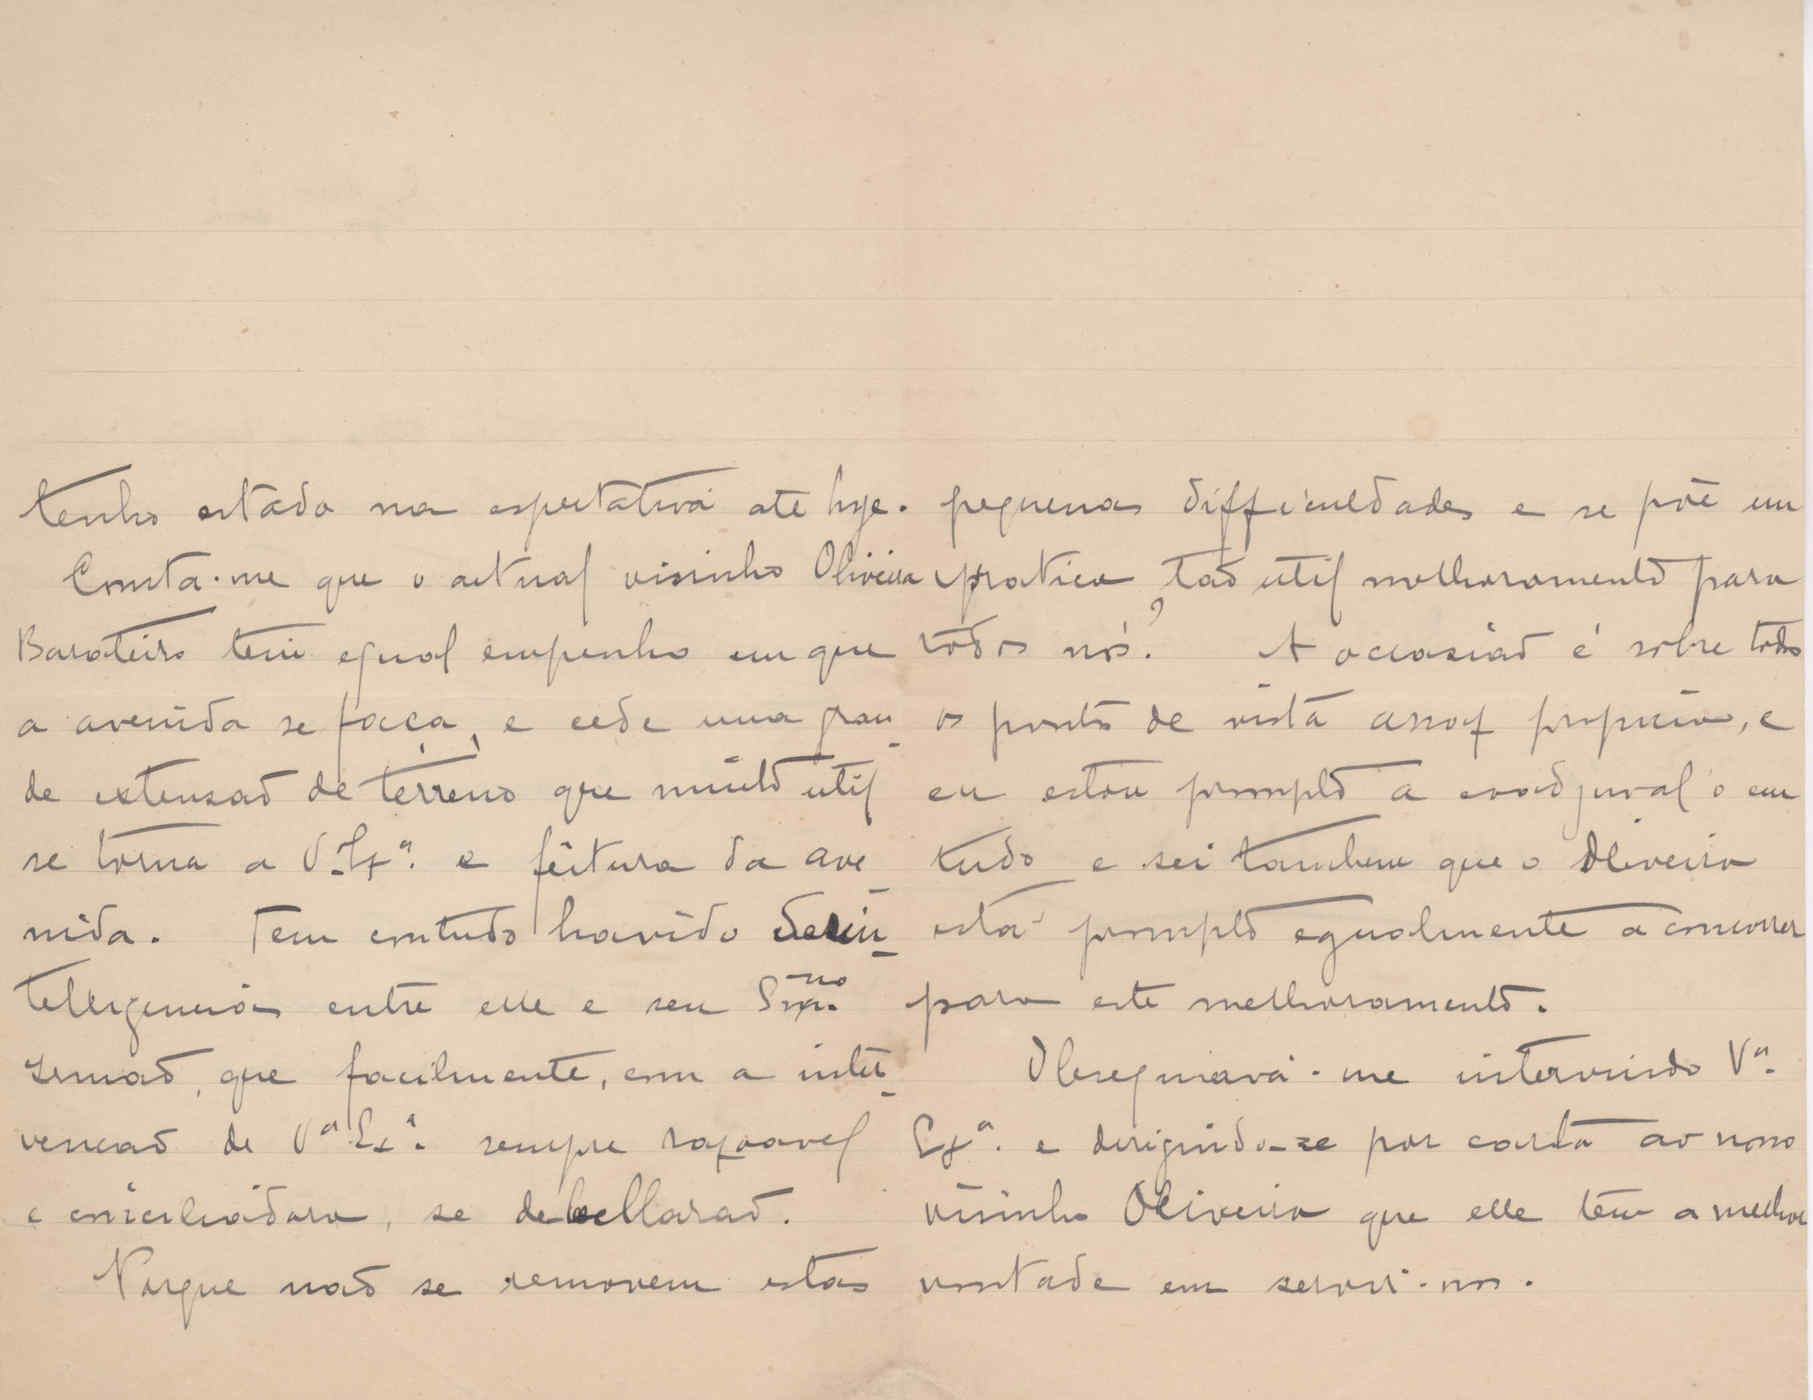 tenho estado na espectativa até hoje.
Consta-me que o actual visinho Oliveira
Barateiro tem egual empenho em que
a avenida se faça, e cede uma gran-
de extensaõ de terreno que muito util
se torna a V. Exª. e feitura da ave-
nida. Tem comtudo havido desin-
telligencias entre elle e seu Sr.
Irmaõ, que facilmente, com a inter-
vencaõ de Vª Exª. sempre razoavel
e conciliadora, se debellaraõ.
Porque naõ se removem estas
pequenas difficuldades e se põe em
pratica taõ util melhoramento para
todos nós? A occasiaõ é sobre todos
os pontos de vista assaz propicia, e
eu estou prompto a coadjuval-o em
tudo e sei tambem que o Oliveira
está prompto egualmente a concorrer
para este melhoramento.
Obsequiava-me intervindo Vª.
Exª. e dirigindo-se por carta ao nosso
visinho Oliveira que elle tem a melhor
vontade em servir-nos.